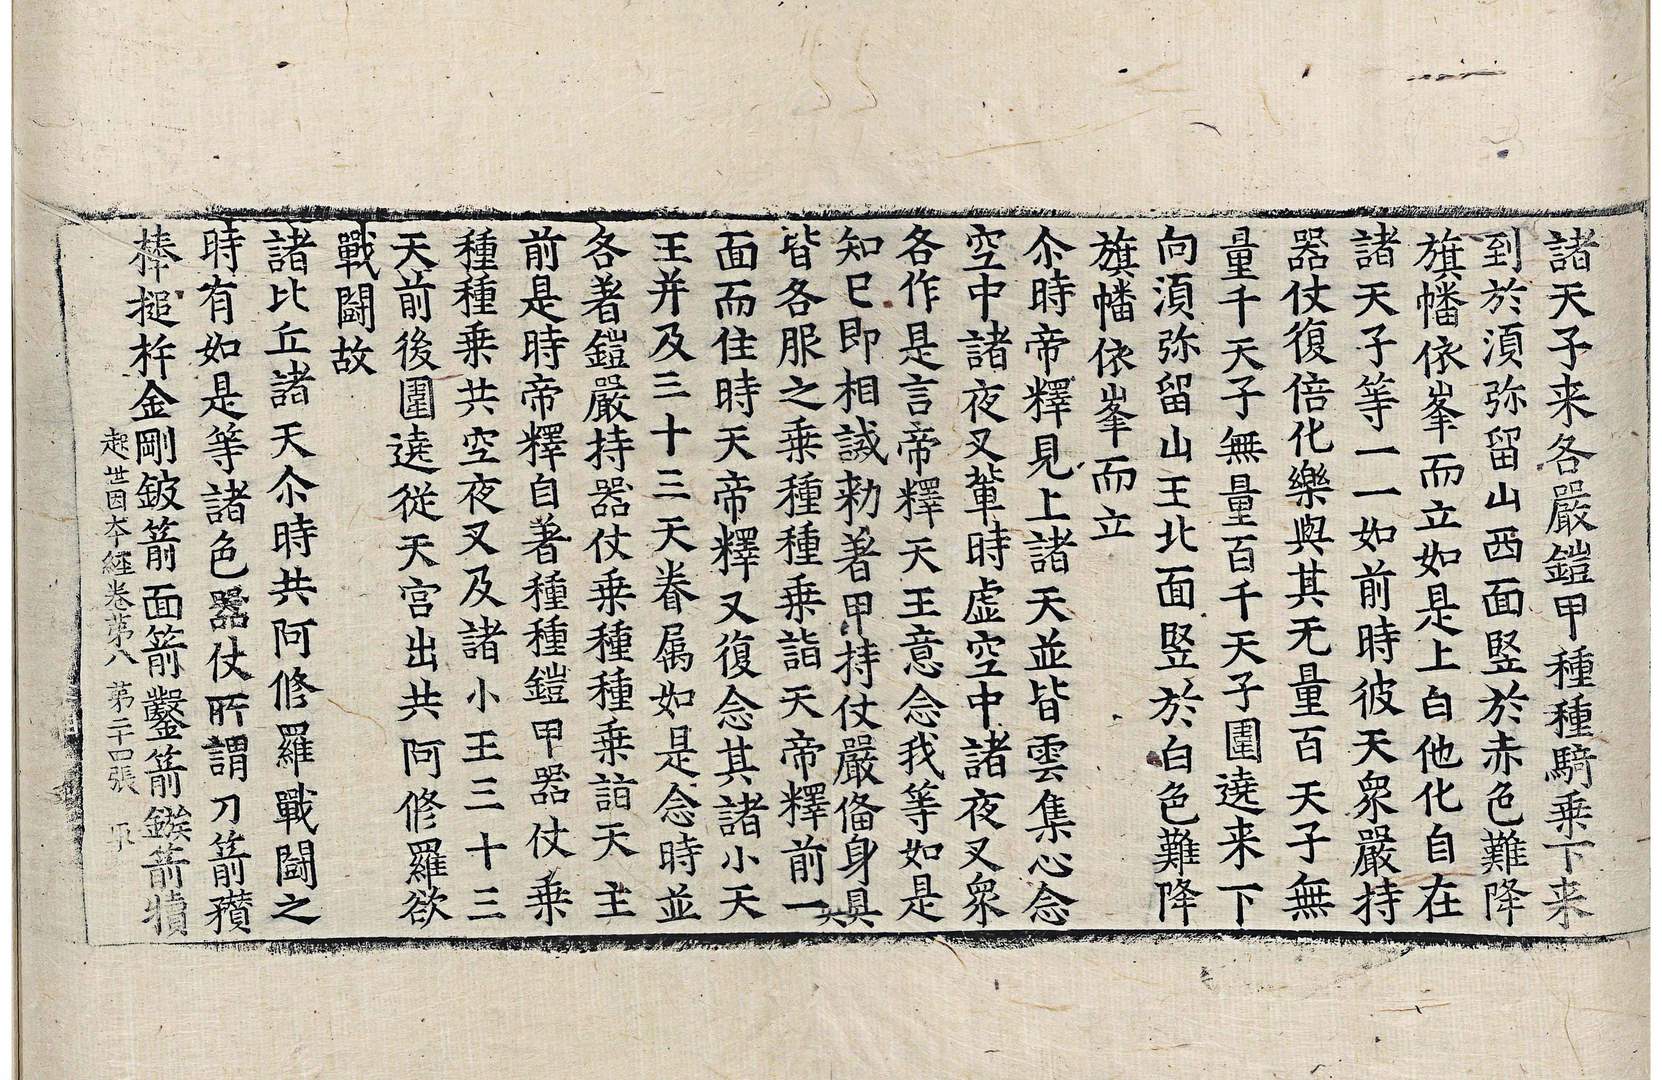 諸天子来各嚴鎧甲種種騎乗下来
到於湏弥留山西面竪於赤色難降
旗幡依峯而立如是上白他化自在
諸天子等一一如前時彼天衆嚴持
器仗復倍化樂與其无量百天子無
量千天子無量百千天子圍遶来下
向湏弥留山王北面竪於白色難降
旗幡依峯而立
尒時帝釋見上諸天並皆雲集心念
空中諸夜叉輩時虚空中諸夜叉衆
各作是言帝釋天王意念我等如是
知已即相誡勑著甲持仗嚴俻身具
皆各服之乗種種乗詣天帝釋前一
面而住時天帝釋又復念其諸小天
王并及三十三天眷属如是念時並
各著鎧嚴持器仗乗種種乗詣天主
前是時帝釋自著種種鎧甲器仗乗
種種乗共空夜叉及諸小王三十三
天前後圍遶従天宮出共阿修羅欲
戰鬪故
諸比丘諸天尒時共阿修羅戰鬪之
時有如是等諸色器仗所謂刀箭䂎
棒搥杵金剛鈹箭面箭鑿箭鏃箭犢
起世因本經卷第八 第二十四張